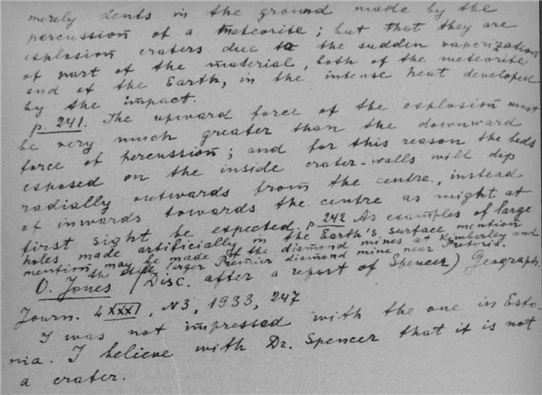 merely dents in the ground made by the
percussion of a meteorite; but that they are
explosion craters due to the sudden vaporization
of part of the material, both of the meteorite
and of the Earth, in the intense heat developed
by the impact.
p. 241. The upward force of the explosion must
be very much greater than the downward
force of percussion; and for this reason the beds
exposed on the inside crater-walls will dip
radially outwards from the centre, instead
of inwards towards the centre as might at
first sight be expected. p 242 As examples of large
holes made artificially in the Earth's surface mention
mention may be made of the diamond mines at Kimberley and
the still larger Premier diamond mine near Pretoria.
O. Jones (Disc. after a report of Spencer) Geograph.
Journ. LXXXI, N3, 1933, 247
I was not impressed with the one in Esto-
nia. I believe with Dr. Spencer that it is not
a crater.